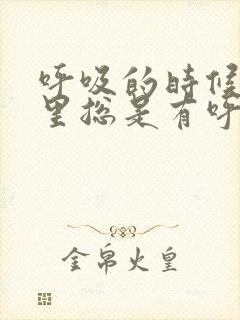 呼吸的时候
里总是有呼
金帛火皇